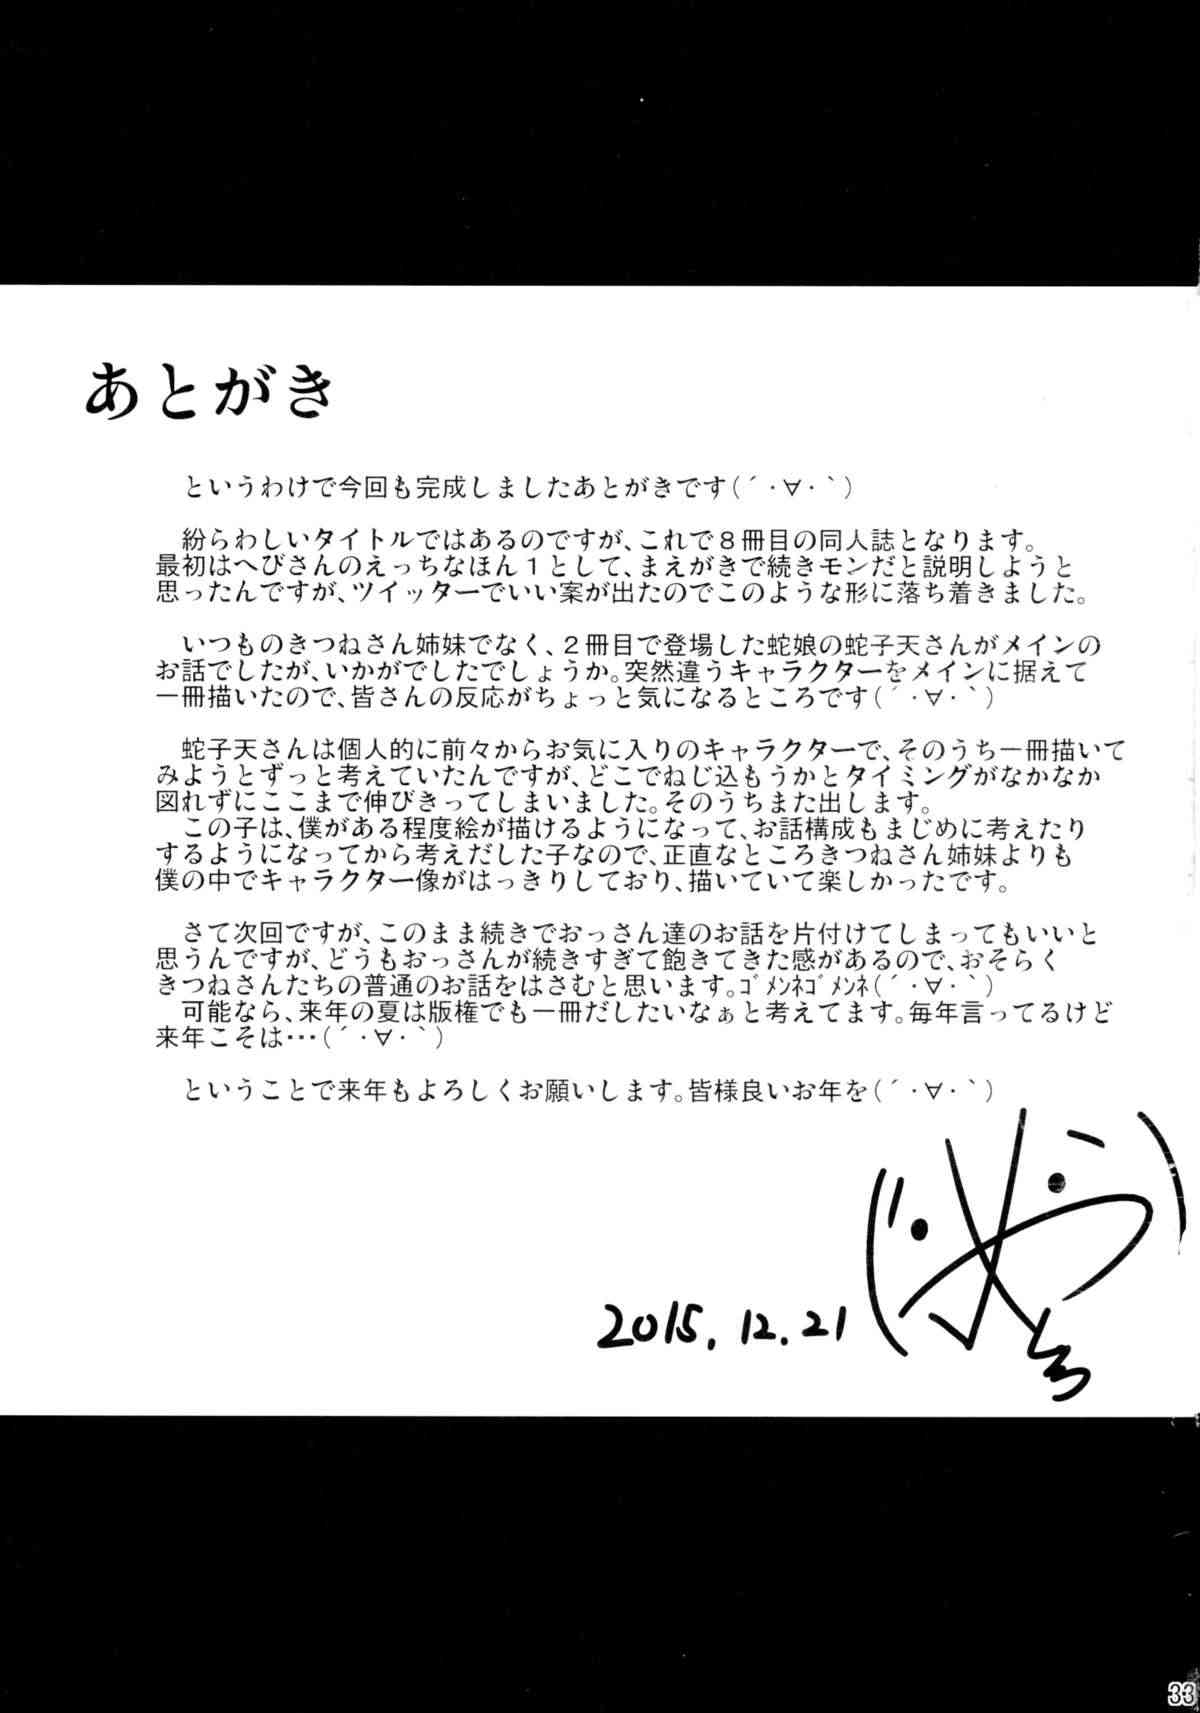 あとがき
というわけで今回も完成しましたあとがきです(´・∀・｀)
紛らわしいタイトルではあるのですが、これで８冊目の同人誌となります。
最初はへびさんのえっちなほん１として、まえがきで続きモンだと説明しようと
思ったんですが、ツイッターでいい案が出たのでこのような形に落ち着きました。
いつものきつねさん姉妹でなく、２冊目で登場した蛇娘の蛇子天さんがメインの
お話でしたが、いかがでしたでしょうか。突然違うキャラクターをメインに据えて
一冊描いたので、皆さんの反応がちょっと気になるところです(´・∀・｀)
蛇子天さんは個人的に前々からお気に入りのキャラクターで、そのうち一冊描いて
みようとずっと考えていたんですが、どこでねじ込もうかとタイミングがなかなか
図れずにここまで伸びきってしまいました。そのうちまた出します。
この子は、僕がある程度絵が描けるようになって、お話構成もまじめに考えたり
するようになってから考えだした子なので、正直なところきつねさん姉妹よりも
僕の中でキャラクター像がはっきりしており、描いていて楽しかったです。
さて次回ですが、このまま続きでおっさん達のお話を片付けてしまってもいいと
思うんですが、どうもおっさんが続きすぎて飽きてきた感があるので、おそらく
きつねさんたちの普通のお話をはさむと思います。ｺﾞﾒﾝﾈｺﾞﾒﾝﾈ(´・∀・｀)
可能なら、来年の夏は版権でも一冊だしたいなぁと考えてます。毎年言ってるけど
来年こそは…(´・∀・｀)
ということで来年もよろしくお願いします。皆様良いお年を(´・∀・｀)
2015.12.21
33